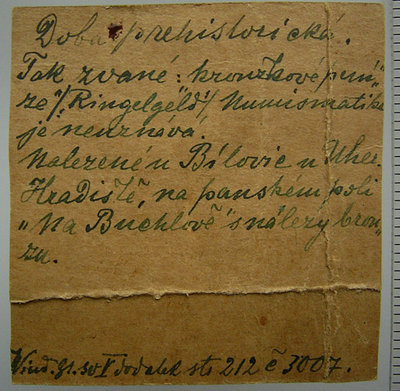 Doba prehistorická.
Tak zvané: krouzkové pení„
ze"/Ringelgeld/ Numismatika
je neuznává.
Nalezené u Bílovic u Uher.
Hradiště, na panském poli
„Na Buchlově" s nálezy bron„
zu.
dodatek str 212 č 3007.